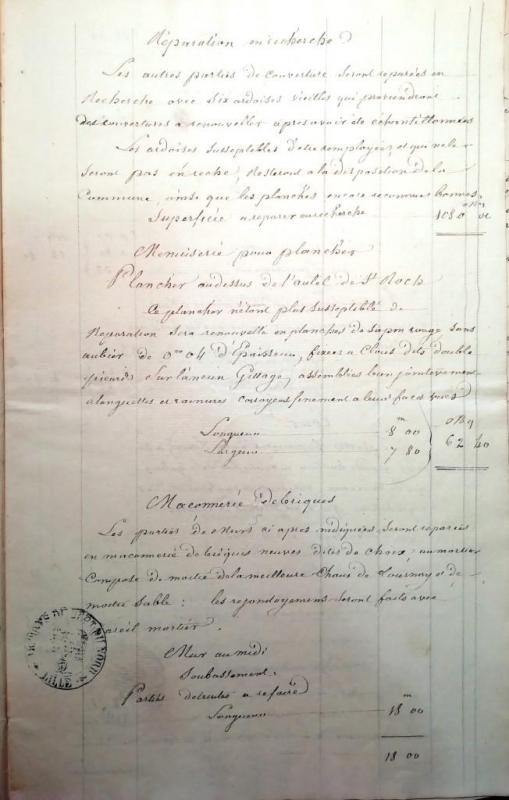 Réparation en recherche
Les autres parties de couverture seront reparées en
Recherche avec dix ardoises vieilles qui proviendront
des couvertures a renouveller apres avoir ete échantillonnées
Les ardoises susseptibles d'etre remployées, et qui ne le
seront pas en reche, Resteront a la disposition de la
Commune, ainsi que les planches encore reconnues bonnes
Superficie a reparer en recherche 1080
Menuiserie pour plancher
Plancher audessus de l'autel de St Roch
Ce plancher n'etant plus susseptible de
Reparation Sera renouvellé en planches de sapin rouge sans
aubier de 0m 04 d'Epaisseur, fixées a Clous dits double
sur l'ancien Gittage, assemblées bien jointivement
a languettes et rainures finement a leurs faces vues
Longueur 8m 00
Largeur 7 80
62 40
Maconnerie de briques
Les parties de Murs ci apres indiquées, seront reparées
en maconnerie de briques neuves dites de choix: au mortier
Composé de moitié de la meilleure Chaux de Tournay et de
moitié Sable: les rejointoyements seront faits avec
pareil mortier.
Mur au midi
Soubassement
Parties detruites a refaire
Longueur 18m 00
18 00
LILLE